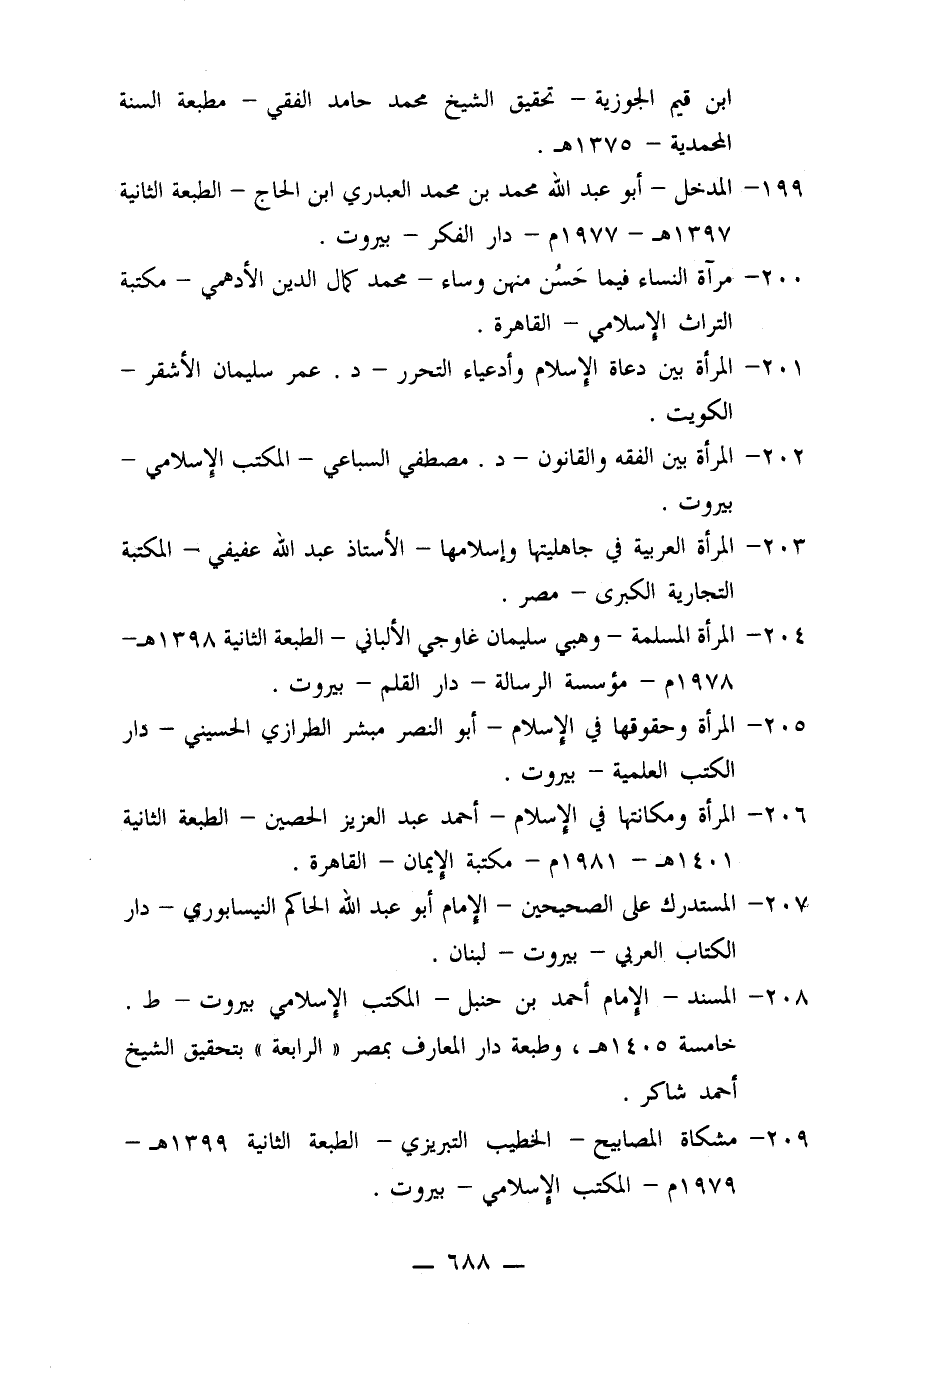 ابن قيم الجوزية – تحقيق الشيخ محمد حامد الفقي – مطبعة السنة
المحمدية – ١٣٧٥هـ .
١٩٩– المدخل – أبو عبد الله محمد بن محمد العبدري ابن الحاج – الطبعة الثانية
١٣٩٧هـ – ١٩٧٧م – دار الفكر – بيروت .
٢٠٠– مرآة النساء فيما حَسُن منهن وساء – محمد كمال الدين الأدهمي – مكتبة
التراث الإسلامي – القاهرة .
٢٠١– المرأة بين دعاة الإسلام وأدعياء التحرر – د . عمر سليمان الأشقر –
الكويت .
٢٠٢– المرأة بين الفقه والقانون – د . مصطفي السباعي – المكتب الإسلامي –
بيروت .
٢٠٣– المرأة العربية في جاهليتها وإسلامها – الأستاذ عبد الله عفيفي – المكتبة
التجارية الكبرى – مصر .
٢٠٤– المرأة المسلمة – وهبي سليمان غاوجي الألباني – الطبعة الثانية ١٣٩٨هـ–
١٩٧٨م – مؤسسة الرسالة – دار القلم – بيروت .
٢٠٥– المرأة وحقوقها في الإسلام – أبو النصر مبشر الطرازي الحسيني – دار
الكتب العلمية – بيروت .
٢٠٦– المرأة ومكانتها في الإسلام – أحمد عبد العزيز الحصين – الطبعة الثانية
١٤٠١هـ – ١٩٨١م – مكتبة الإيمان – القاهرة .
٢٠٧– المستدرك على الصحيحين – الإمام أبو عبد الله الحاكم النيسابوري – دار
الكتاب العربي – بيروت – لبنان .
٢٠٨– المسند – الإمام أحمد بن حنبل – المكتب الإسلامي بيروت – ط .
خامسة ١٤٠٥هـ ، وطبعة دار المعارف بمصر « الرابعة » بتحقيق الشيخ
أحمد شاكر .
٢٠٩– مشكاة المصابيح – الخطيب التبريزي – الطبعة الثانية ١٣٩٩هـ –
١٩٧٩م – المكتب الإسلامي – بيروت .
— ٦٨٨ —